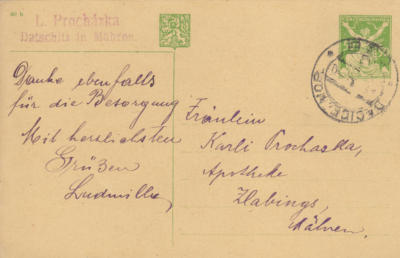 L. Procházka
Datschitz in Mähren.
Danke ebenfalls
für die Besorgung
Mit herzlichsten
Grüßen
Ludmilla
Fräulein
Karli Prochazka,
Apotheke
Zlabings,
Mähren.
DAČICE